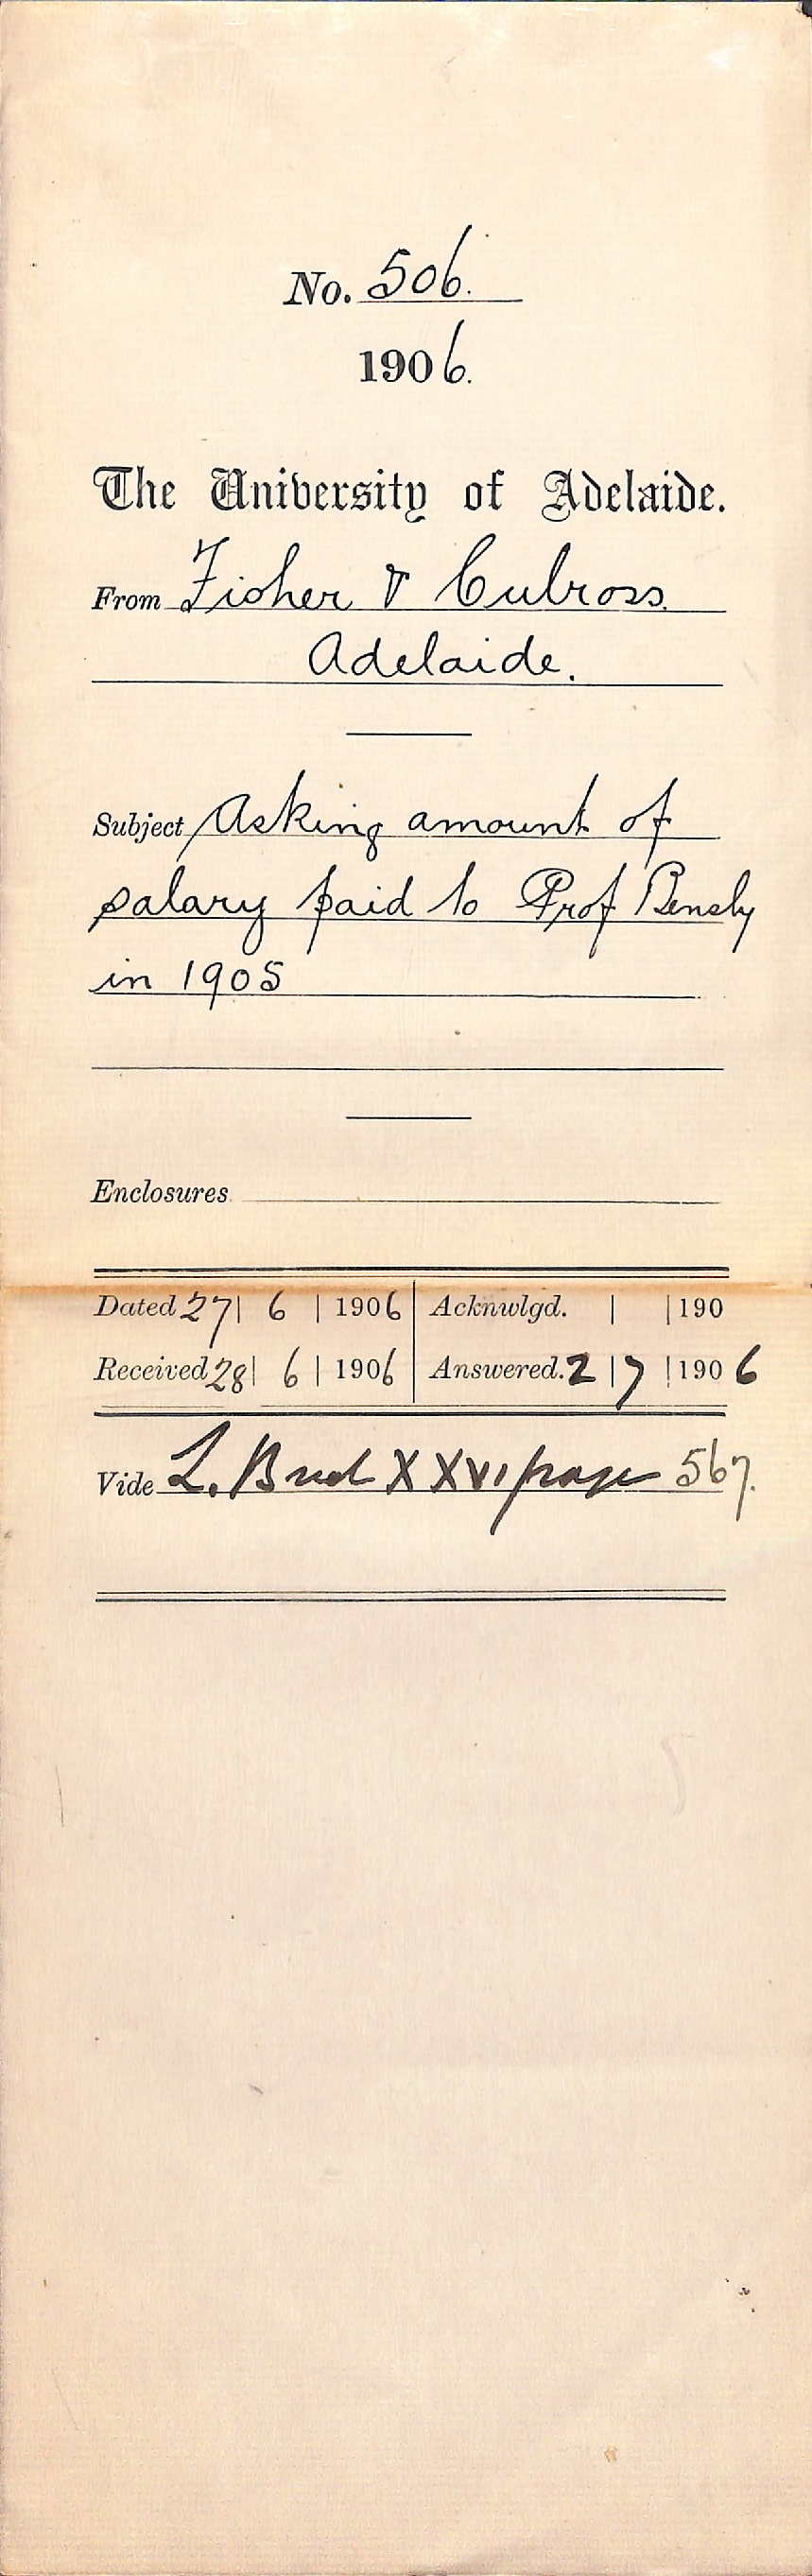 No. 506.
1906.
The University of Adelaide.
From Fisher & Culross
Adelaide.
Subject Asking amount of
salary paid to Prof Bensly
in 1905
Enclosures
Dated 27 | 6 | 1906 Acknwlgd. | | 190
Received 28 | 6 | 1906 Answered. 2 | 7 | 1906
Vide L. XXVI page 567.